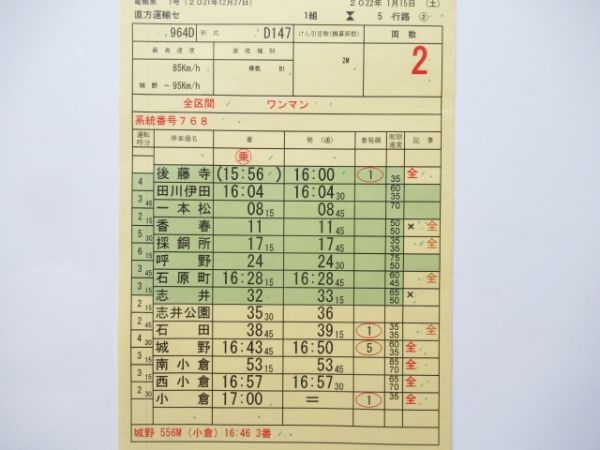 電報第 1号(2021年12月27日) 2022年 1月15日 (土)
直方運輸セ 1組 5 行路 ②
964D 形式 D147 けん引定数(換算両数) 両数
最高速度 速度種別
85Km/h 停気 B1 2M 2
城野 ~ 95Km/h
全区間 ワンマン
系統番号768
運転時分 停車場名 着 発(通) 着発線 制限速度 記事
乗
4 後藤寺 (15:56 ) 16:00 1 35 全
3 45 田川伊田 16:04 16:04 30 60 35
2 15 一本松 08 15 08 45 70
5 30 香春 11 11 45 50 50 × 全
6 15 採銅所 17 15 17 45 35 35 全
3 45 呼野 24 24 30 75 50
3 15 石原町 16:28 15 16:28 45 60 45 全
2 15 志井 32 33 15 65 50 ×
2 15 志井公園 35 30 36
4 30 石田 38 45 39 15 1 35 35 全
3 15 城野 16:43 45 16:50 5 60 35 全
3 15 南小倉 53 15 53 45 85 70 全
2 30 西小倉 16:57 16:57 30 65 70 全
小倉 17:00 = 1 35 全
城野 556M (小倉) 16:46 3番